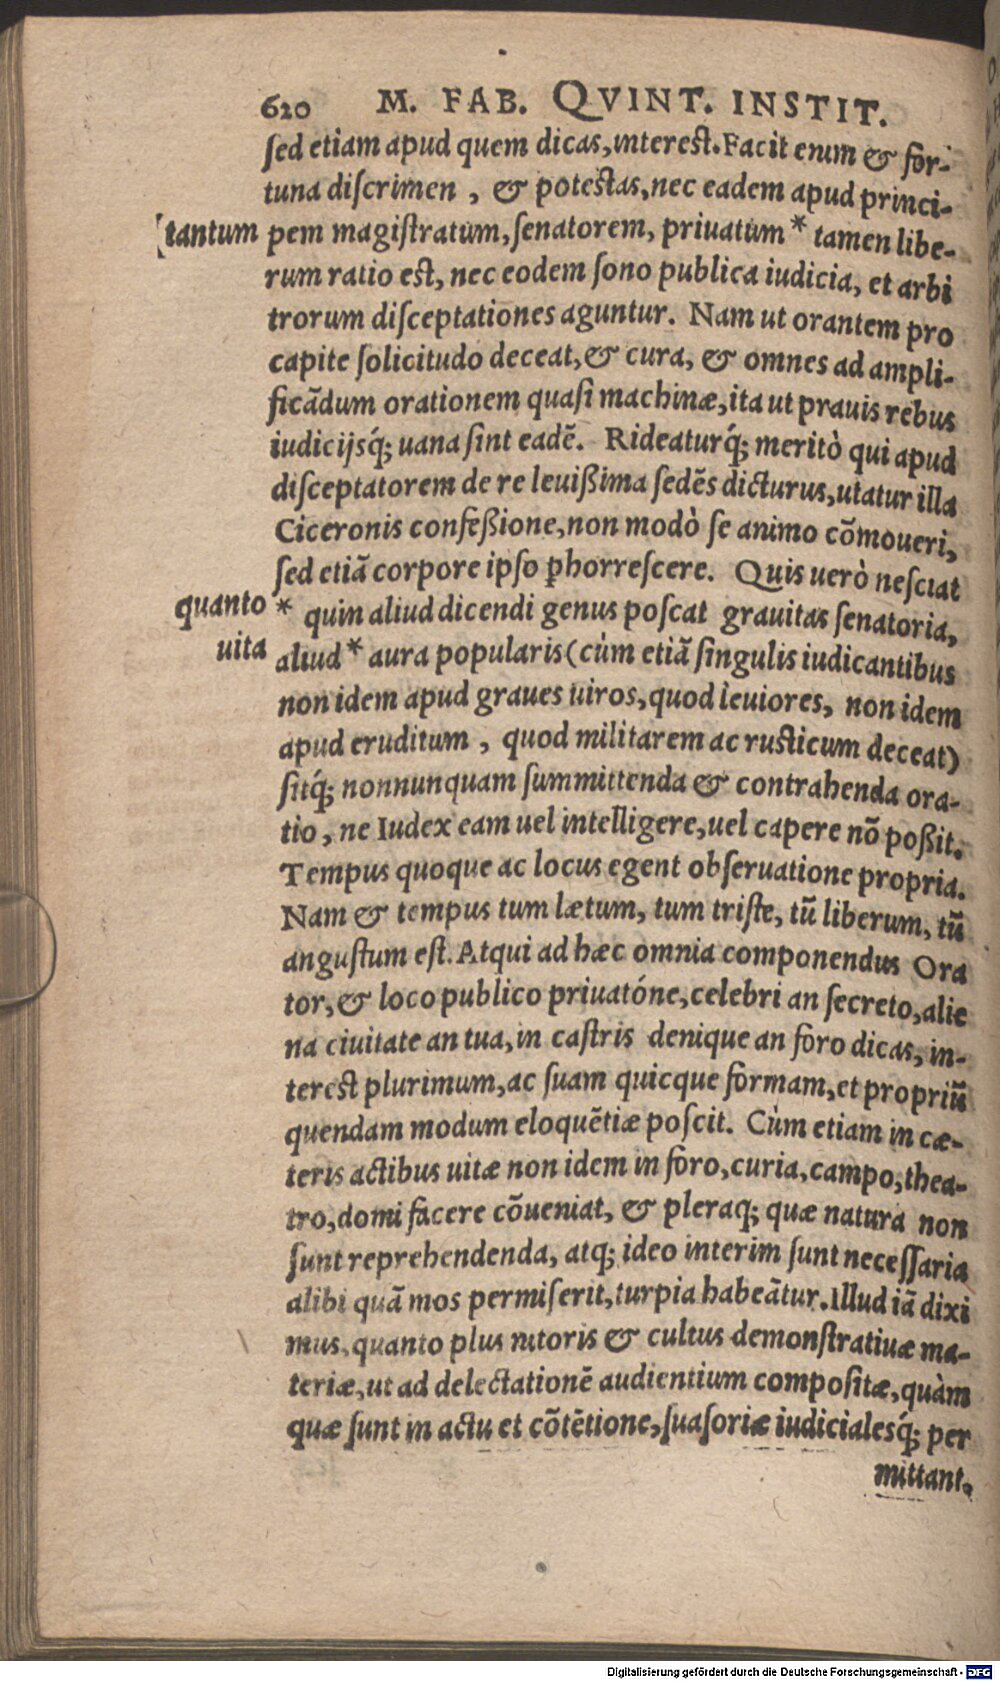 620 M. FAB. QVINT. INSTIT.
sed etiam apud quem dicas, interest. Facit enim & for-
tuna discrimen , & potestas, nec eadem apud princi-
[tantum pem magistratum, senatorem, priuatum * tamen libe-
rum ratio est, nec eodem sono publica iudicia, et arbi
trorum disceptationes aguntur. Nam ut orantem pro
capite solicitudo deceat, & cura, & omnes ad ampli-
ficãdum orationem quasi machinæ, ita ut prauis rebus
iudicijsq́; uana sint eadẽ. Rideaturq́; meritò qui apud
disceptatorem de re leuißima sedẽs dicturus, utatur illa
Ciceronis confeßione, non modò se animo cõmoueri,
sed etiã corpore ipso ꝑhorrescere. Quis uerò nesciat
quanto * quin aliud dicendi genus poscat grauitas senatoria,
uita aliud * aura popularis (cùm etiã singulis iudicantibus
non idem apud graues uiros, quod leuiores, non idem
apud eruditum , quod militarem ac rusticum deceat)
sitq́; nonnunquam summittenda & contrahenda ora-
tio, ne Iudex eam uel intelligere, uel capere nõ poßit.
Tempus quoque ac locus egent obseruatione propria.
Nam & tempus tum lætum, tum triste, tũ liberum, tũ
angustum est. Atqui ad hæc omnia componendus Ora
tor, & loco publico priuatóne, celebri an secreto, alie
na ciuitate an tua, in castris denique an foro dicas, in-
terest plurimum, ac suam quicque formam, et propriũ
quendam modum eloquẽtiæ poscit. Cùm etiam in cæ-
teris actibus uitæ non idem in foro, curia, campo, thea-
tro, domi facere cõueniat, & pleraq; quæ natura non
sunt reprehendenda, atq; ideo interim sunt necessaria
alibi quã mos permiserit, turpia habeãtur. Illud iã dixi
mus, quanto plus nitoris & cultus demonstratiuæ ma-
teriæ, ut ad delectationẽ audientium compositæ, quàm
quæ sunt in actu et cõtẽtione, suasoriæ iudicialesq́; per
mittant.
Digitalisierung gefördert durch die Deutsche Forschungsgemeinschaft - DFG